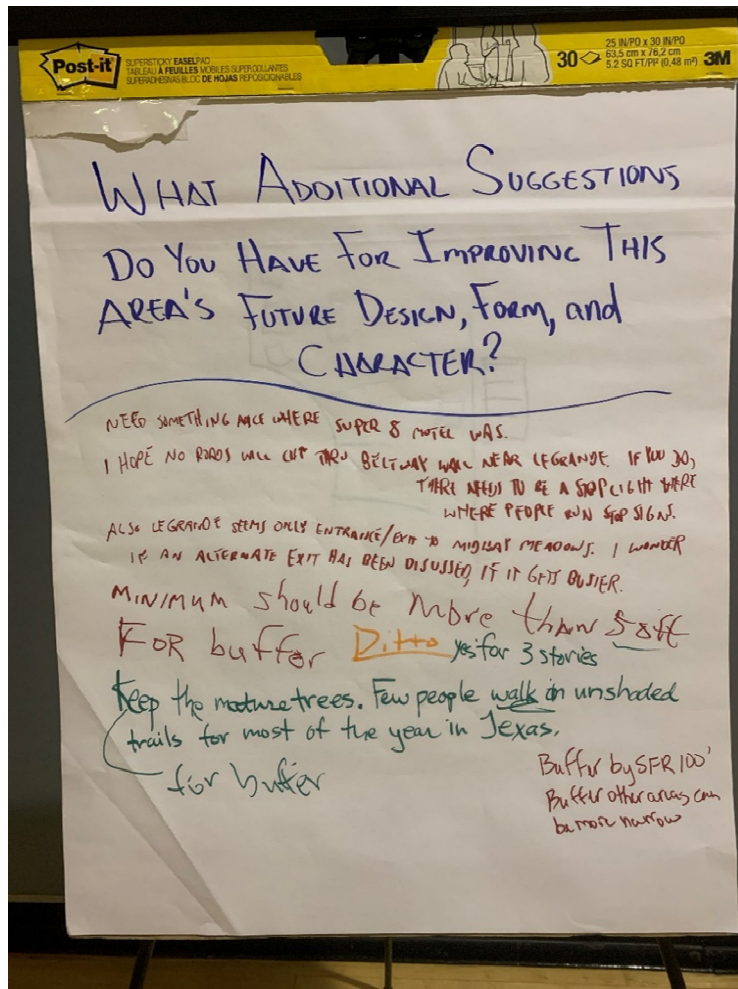 Post-it
SUPERSTICKY EASEL PAD
TABLEAU À FEUILLES MOBILES SUPERCOLLANTES
SUPERADHESIVAS BLOC DE HOJAS REPOSICIONABLES
30
25 IN/PO x 30 IN/PO
63,5 cm x 76,2 cm
5.2 SQ FT/PI² (0,48 m²)
3M
WHAT ADDITIONAL SUGGESTIONS
DO YOU HAVE FOR IMPROVING THIS
AREA'S FUTURE DESIGN, FORM, and
CHARACTER?
NEED SOMETHING NICE WHERE SUPER 8 MOTEL WAS.
I HOPE NO ROADS WILL CUT THRU BELTWAY WALL NEAR LEGRANDE. IF YOU DO,
THERE NEEDS TO BE A STOPLIGHT THERE
WHERE PEOPLE RUN STOP SIGNS.
ALSO LEGRANDE SEEMS ONLY ENTRANCE/EXIT TO MIDWAY MEADOWS. I WONDER
IF AN ALTERNATE EXIT HAS BEEN DISUSSED, IF IT GETS BUSIER.
MINIMUM should be More than 50ft
FOR buffer Ditto yes for 3 stories
Keep the mature trees. Few people walk on unshaded
trails for most of the year in Texas.
for buffer
Buffer by SFR 100'
Buffer other areas can
be more narrow